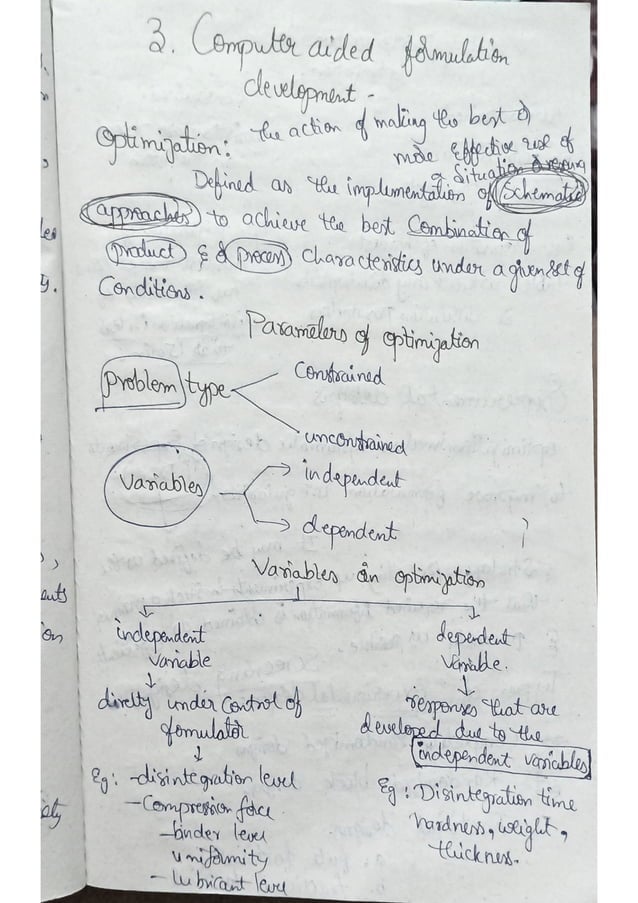 3. Computer aided formulation
development -
Optimization: the action of making the best or
more effective use of
a situation
Defined as the implementation of Schematic
approaches to achieve the best Combination of
product & process Characteristics under a given set of
Conditions.
Parameters of optimization
problem type
Constrained
unconstrained
Variables
independent
dependent
Variables in optimization
independent
variable
dependent
variable.
direltly under control of
fomulator
responses that are
developed due to the
independent variables
Eg: -disintegration level
-Compression force
-binder level
uniformity
-lubricant level
Eg: Disintegration time
hardness, weight,
thickness.